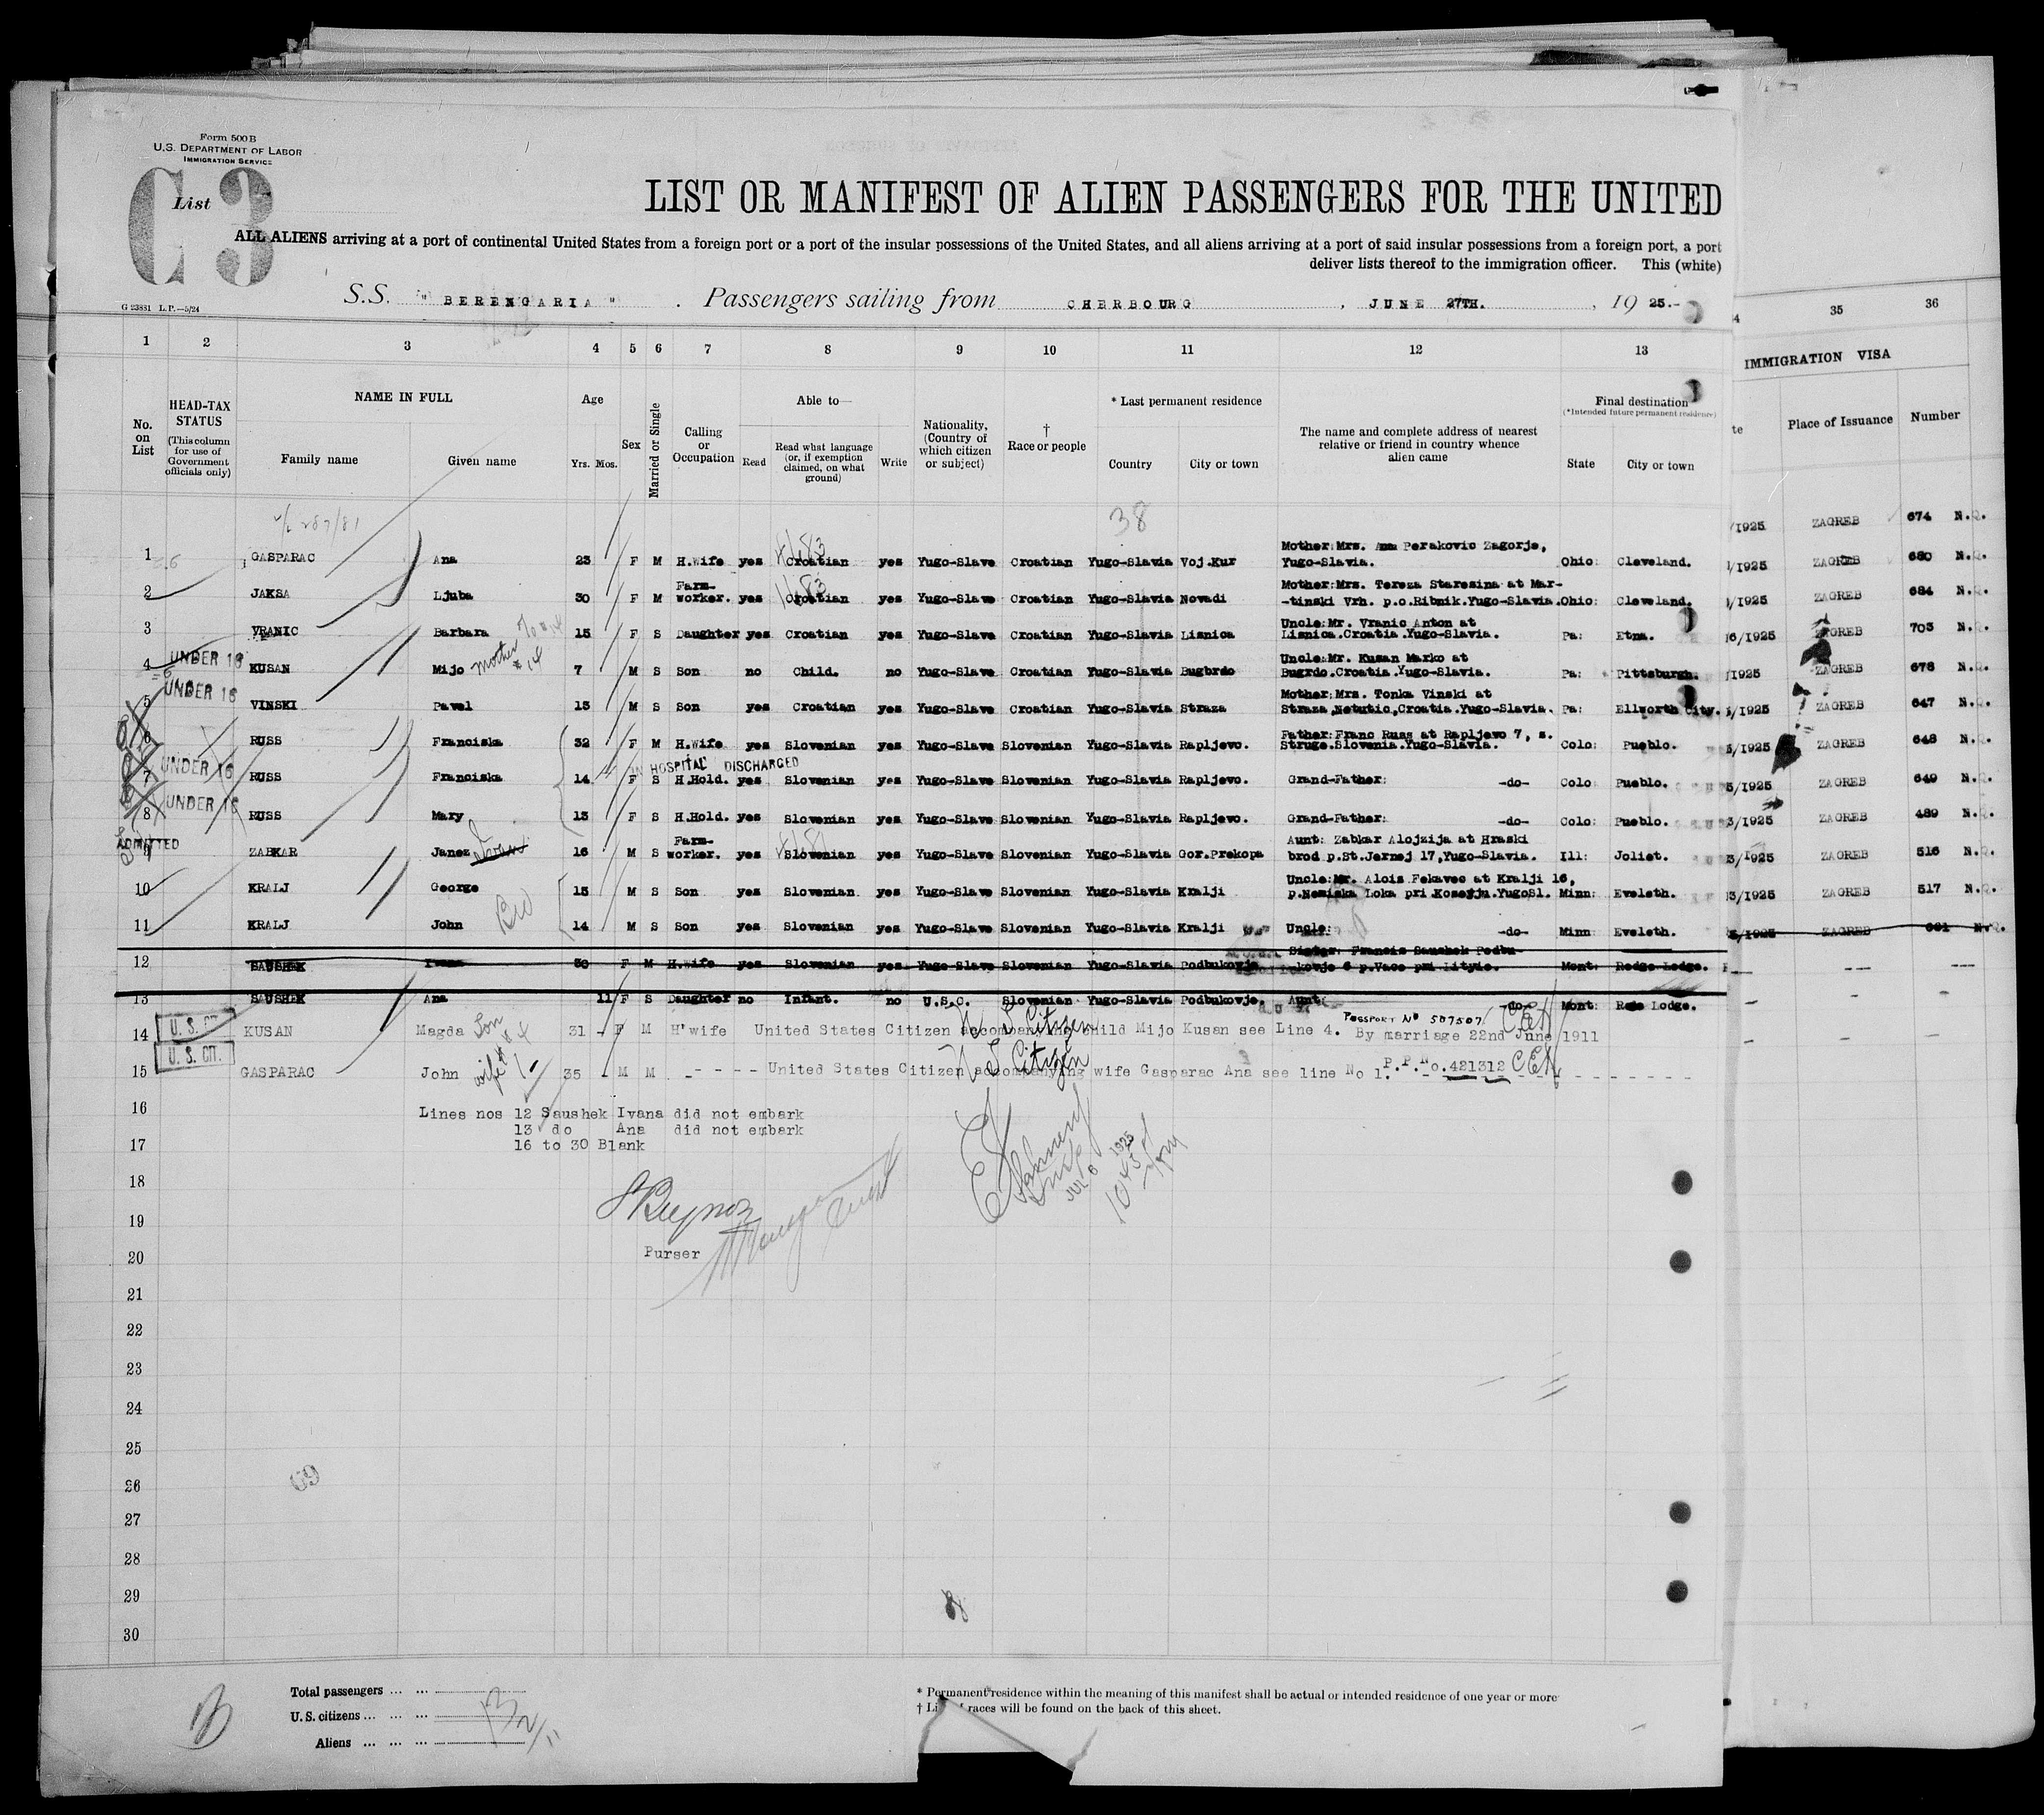 Form 500B
U.S. DEPARTMENT OF LABOR
IMMIGRATION SERVICE
C3
List
LIST OR MANIFEST OF ALIEN PASSENGERS FOR THE UNITED
ALL ALIENS arriving at a port of continental United States from a foreign port or a port of the insular possessions of the United States, and all aliens arriving at a port of said insular possessions from a foreign port, a port
deliver lists thereof to the immigration officer. This (white)
S.S. "BERENGARIA". Passengers sailing from CHERBOURG, JUNE 27TH., 1925.-
G 23881 L.P.—5/24
1 2 3 4 5 6 7 8 9 10 11 12 13 35 36
IMMIGRATION VISA
No. on List
HEAD-TAX STATUS (This column for use of Government officials only)
NAME IN FULL
Family name Given name
Age
Yrs. Mos.
Sex
Married or Single
Calling or Occupation
Able to—
Read
Read what language (or, if exemption claimed, on what ground)
Write
Nationality, (Country of which citizen or subject)
† Race or people
* Last permanent residence
Country City or town
The name and complete address of nearest relative or friend in country whence alien came
Final destination
(*Intended future permanent residence)
State City or town
Place of Issuance Number
38
/1925 ZAGREB 674 N.Q.
1 GASPARAC Ana 23 F M H.Wife yes Croatian yes Yugo-Slave Croatian Yugo-Slavia Voj.Kur Mother:Mrs. Ana Perakovic Zagorje, Yugo-Slavia. Ohio: Cleveland. /1925 ZAGREB 680 N.Q.
2 JAKSA Ljuba 30 F M Farm-worker. yes Croatian yes Yugo-Slave Croatian Yugo-Slavia Novadi Mother:Mrs. Tereza Staresina at Mar--tinski Vrh. p.o.Ribnik.Yugo-Slavia. Ohio: Cleveland. /1925 ZAGREB 684 N.Q.
3 VRANIC Barbara 15 F S Daughter yes Croatian yes Yugo-Slave Croatian Yugo-Slavia Lisnica Uncle:Mr. Vranic Anton at Lisnica.Croatia.Yugo-Slavia. Pa: Etna. 6/1925 ZAGREB 703 N.Q.
4 UNDER 16 KUSAN Mijo mother # 14 7 M S Son no Child. no Yugo-Slave Croatian Yugo-Slavia Bugbrdo Uncle:Mr. Kusan Marko at Bugrdo.Croatia.Yugo-Slavia. Pa: Pittsburgh. 1925 ZAGREB 678 N.Q.
5 UNDER 16 VINSKI Pavel 13 M S Son yes Croatian yes Yugo-Slave Croatian Yugo-Slavia Straza Mother:Mrs. Tonka Vinski at Straza,Netutic,Croatia.Yugo-Slavia. Pa: Ellworth City. /1925 ZAGREB 647 N.Q.
6 RUSS Franciska 32 F M H.Wife yes Slovenian yes Yugo-Slave Slovenian Yugo-Slavia Rapljevo. Father:Franc Russ at Rapljevo 7, s. Struge.Slovenia.Yugo-Slavia. Colo: Pueblo. 3/1925 ZAGREB 648 N.Q.
IN HOSPITAL DISCHARGED
7 UNDER 16 RUSS Franciska 14 F S H.Hold. yes Slovenian yes Yugo-Slave Slovenian Yugo-Slavia Rapljevo. Grand-Father: -do- Colo: Pueblo. 5/1925 ZAGREB 649 N.Q.
8 UNDER 16 RUSS Mary 13 F S H.Hold. yes Slovenian yes Yugo-Slave Slovenian Yugo-Slavia Rapljevo. Grand-Father: -do- Colo: Pueblo. 3/1925 ZAGREB 489 N.Q.
ADMITTED
9 ZABKAR Janez 16 M S Farm-worker. yes Slovenian yes Yugo-Slave Slovenian Yugo-Slavia Gor.Prekopa Aunt: Zabkar Alojzija at Hraski brod p.St.Jernej 17,Yugo-Slavia. Ill: Joliet. 3/1925 ZAGREB 516 N.Q.
10 KRALJ George 15 M S Son yes Slovenian yes Yugo-Slave Slovenian Yugo-Slavia Kralji Uncle:Mr. Alois Fekavec at Kralji 16, p.Nemiska Loka pri Kosevju.YugoSl. Minn: Eveleth. 3/1925 ZAGREB 517 N.Q.
11 KRALJ John 14 M S Son yes Slovenian yes Yugo-Slave Slovenian Yugo-Slavia Kralji Uncle: -do- Minn: Eveleth. 3/1925 ZAGREB 661 N.Q.
12 SAUSHEK Ivana 30 F M H.Wife yes Slovenian yes Yugo-Slave Slovenian Yugo-Slavia Podbukovje Sister: Francis Saushek Podbu-kovje 6 p.Vace pri Lityie. Mont: Redge Lodge.
13 SAUSHEK Ana 11 F S Daughter no Infant. no U.S.C. Slovenian Yugo-Slavia Podbukovje. Aunt: -do- Mont: Lodge.
U.S. CIT.
14 KUSAN Magda Son # 4 31 - F M H'wife United States Citizen accompanying child Mijo Kusan see Line 4. By marriage 22nd June 1911
PASSPORT No 507507. CEH
U S Citizen
U.S. CIT.
15 GASPARAC John wife # 1 35 - M M ----- United States Citizen accompanying wife Gasparac Ana see line No 1. P.P.No.421312 CEH
U S Citizen
16 Lines nos 12 Saushek Ivana did not embark
13 do Ana did not embark
17 16 to 30 Blank
JUL 6 1925
18
19
20 Purser
21
22
23
24
25
26
27
28
29
30
69
Total passengers ... ...
U.S. citizens ... ... ...
Aliens ... ... ...
* Permanent residence within the meaning of this manifest shall be actual or intended residence of one year or more
† races will be found on the back of this sheet.